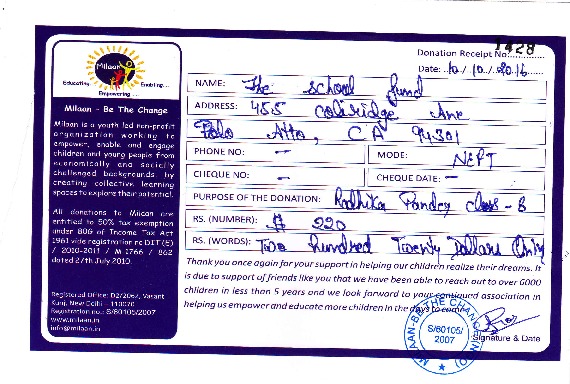 Donation Receipt No: 1428
Date: 10/10/2016
Milaan
Educating Enabling...
Empowering ...
Milaan - Be The Change
Milaan is a youth led non-profit
organization working to
empower, enable and engage
children and young people from
economically and socially
challenged backgrounds, by
creating collective learning
spaces to explore their potential.
All donations to Milaan are
entitled to 50% tax exemption
under 80G of Income Tax Act
1961 vide registration no DIT (E)
/ 2010-2011 / M 1766 / 862
dated 27th July 2010.
Registered Office: D2/2062, Vasant
Kunj, New Delhi - 110070
Registration no.: S/60105/2007
www.milaan.in
info@milaan.in
NAME: The School fund
ADDRESS: 455 Coliridge Ane
Palo Alto, CA 94301
PHONE NO: -
MODE: NEFT
CHEQUE NO: -
CHEQUE DATE: -
PURPOSE OF THE DONATION: Radhika Pandey class - 8
RS. (NUMBER): $ 220
RS. (WORDS): Two Hundred Twenty Dollars Only
Thank you once again for your support in helping our children realize their dreams. It
is due to support of friends like you that we have been able to reach out to over 6000
children in less than 5 years and we look forward to your continued association in
helping us empower and educate more children in the days to come.
MILAAN-BE THE CHANGE
S/60105/
2007
Signature & Date